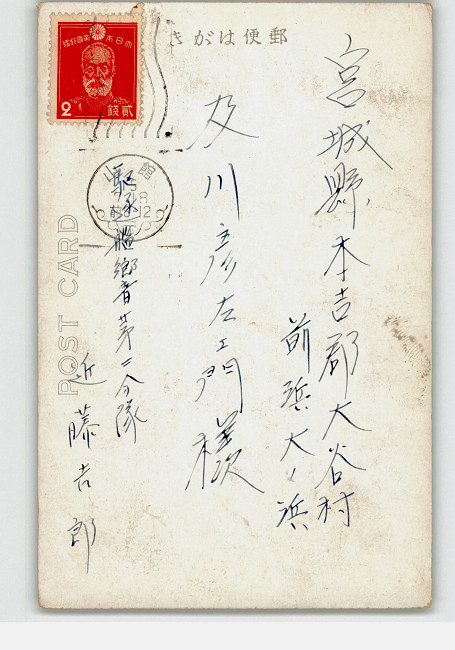 郵便はがき
大日本帝國郵便
2
貳錢
館山
前8-12
POST CARD
宮城縣本吉郡大谷村
前浜大ノ浜
及川彦左ェ門様
驅逐艦響第二分隊
近藤吉郎